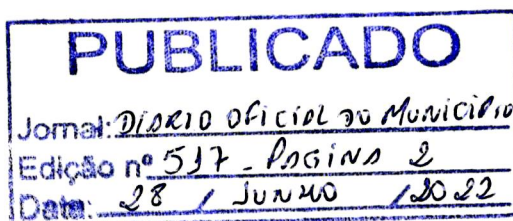 PUBLICADO
Jornal: DIÁRIO OFICIAL DO MUNICÍPIO
Edição nº 517 - PAGINA 2
Data: 28 / JUNHO / 2022